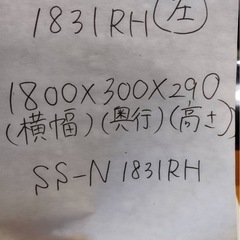 1831RH(左)
1800×300×290
(横幅)(奥行)(高さ)
SS-N1831RH